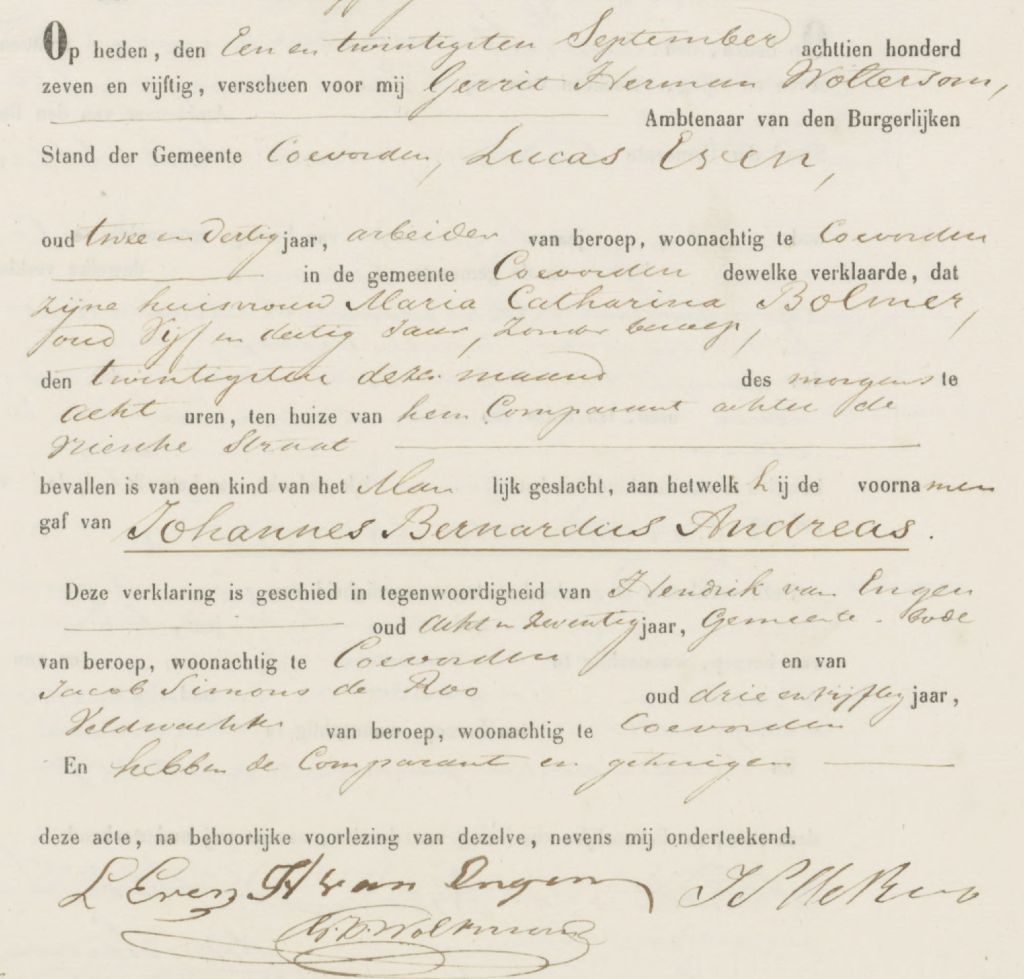 Op heden, den Een en twintigsten September achttien honderd
zeven en vijftig, verscheen voor mij Gerrit Herman Woltersom,
Ambtenaar van den Burgerlijken
Stand der Gemeente Coevorden, Lucas Even,
oud twee en dertig jaar, arbeider van beroep, woonachtig te Coevorden
in de gemeente Coevorden dewelke verklaarde, dat
zijne huisvrouw Maria Catharina Bolmer,
oud Vijf en dertig Jaar, Zonder beroep,
den twintigsten dezer maand des morgens te
acht uren, ten huize van hem Comparant achter de
Friesche Straat
bevallen is van een kind van het Man lijk geslacht, aan hetwelk h ij de voorna men
gaf van Johannes Bernardus Andreas.
Deze verklaring is geschied in tegenwoordigheid van Hendrik van Engen
oud acht en zeventig jaar, Gemeente-bode
van beroep, woonachtig te Coevorden en van
Jacob Simons de Roo oud drie en vijftig jaar,
Veldwachter van beroep, woonachtig te Coevorden
En hebben de Comparant en getuigen
deze acte, na behoorlijke voorlezing van dezelve, nevens mij onderteekend.
L Even H van Engen JS de Roo